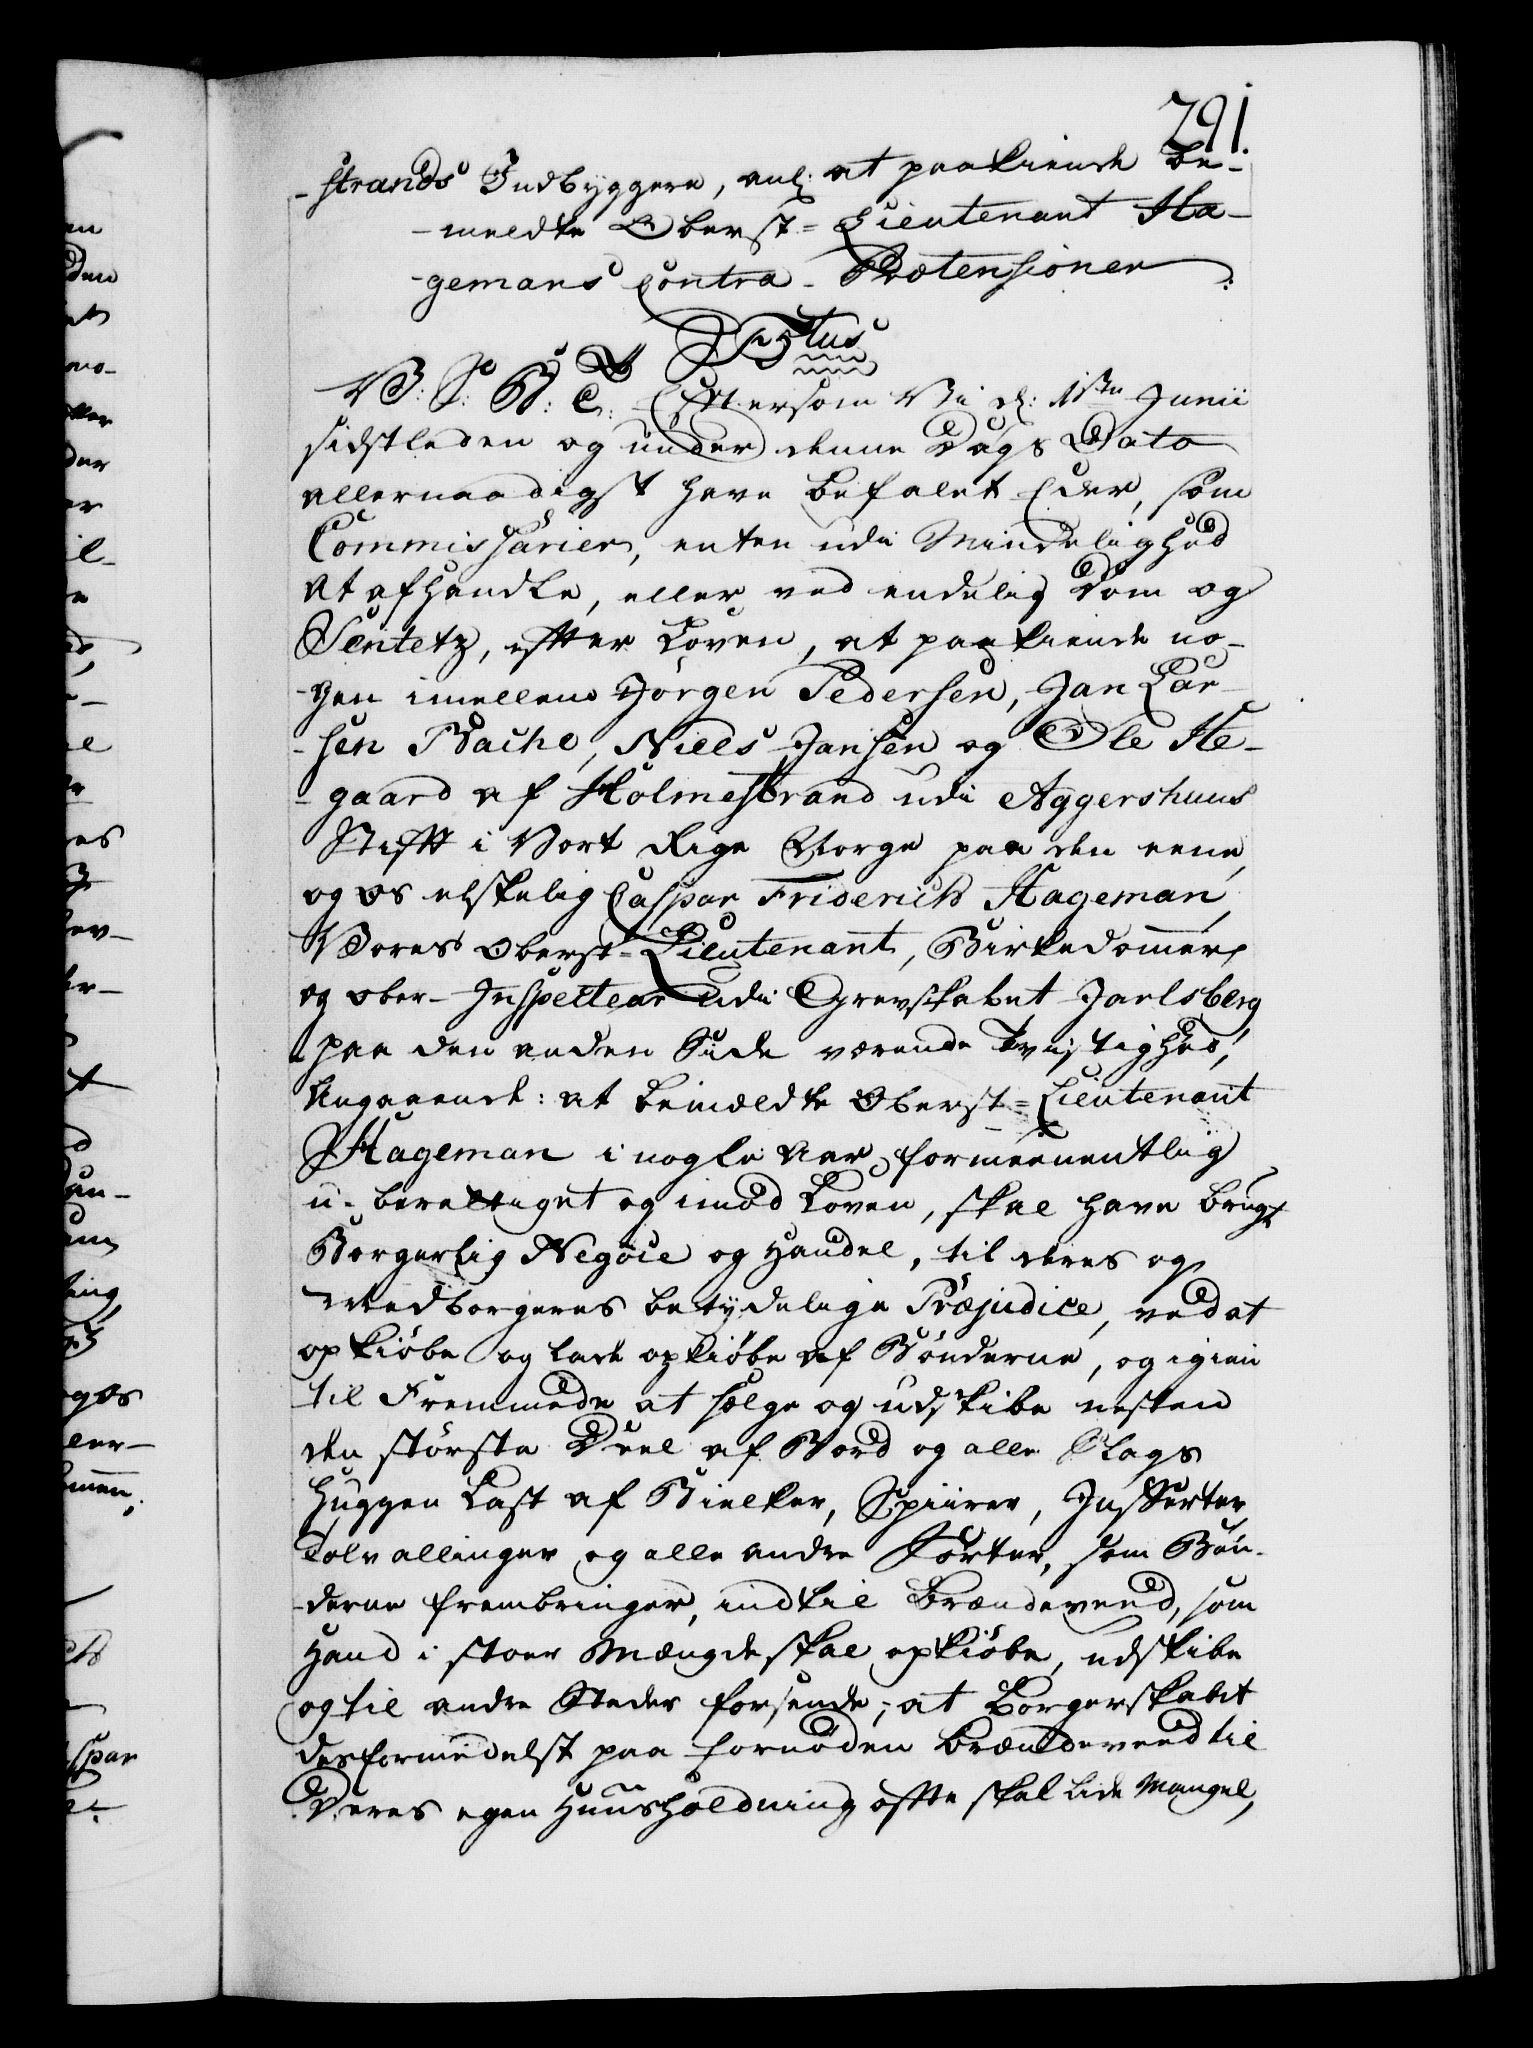 291.
-strands Indbyggere, anl: at paakiende be-
-meldte Oberst-Lieutenant Ha-
-gemans contra-Prætensioner.
C 6tus
V: S: G: T: Eftersom Vi d: 1ste Junii
sidstleden og under denne Dags Dato
allernaadigst have befalet Eder, som
Commissarier, enten udi Mindelighed
at afhandle, eller ved endelig Dom og
Sentetz, efter Loven, at paakiende no-
-gen imellem Jørgen Pedersen, Jan Lar-
-sen Bache, Niels Jansen og Ole He-
-gaard af Holmestrand udi Aggershuus
Stift i Vort Rige Norge paa den eene,
og os elskelig Caspar Friderich Hageman,
Vores Oberst-Lieutenant, Birkedommer
og Ober-Inspecteur udi Grevskabet Jarlsberg
paa den anden Side værende Tvistighed,
Angaaende: at bemældte Oberst-Lieutenant
Hageman i nogle Aar, formeenentlig
u-berettiget og imod Loven, skal have brugt
Borgerlig Negoce og Handel, til deres og
Medborgeres betydelige Præjudice, ved at
opkiøbe og lade opkiøbe af Bønderne, og igien
til Fremmede at sælge og udskibe nesten
den største Deel af Bord og alle Slags
huggen Last af Bielker, Spiirer, Jufferter,
Tolv allinger og alle andre Sorter, som Bøn-
-derne frembringer, indtil Brændeveed, som
Hand i stoer Mængde skal opkiøbe, udskibe
og til andre Steder forsende; at Borgerskabet
desformedelst paa fornøden Brændeveed til
Deres egen Huusholdning ofte skal lide Mangel,